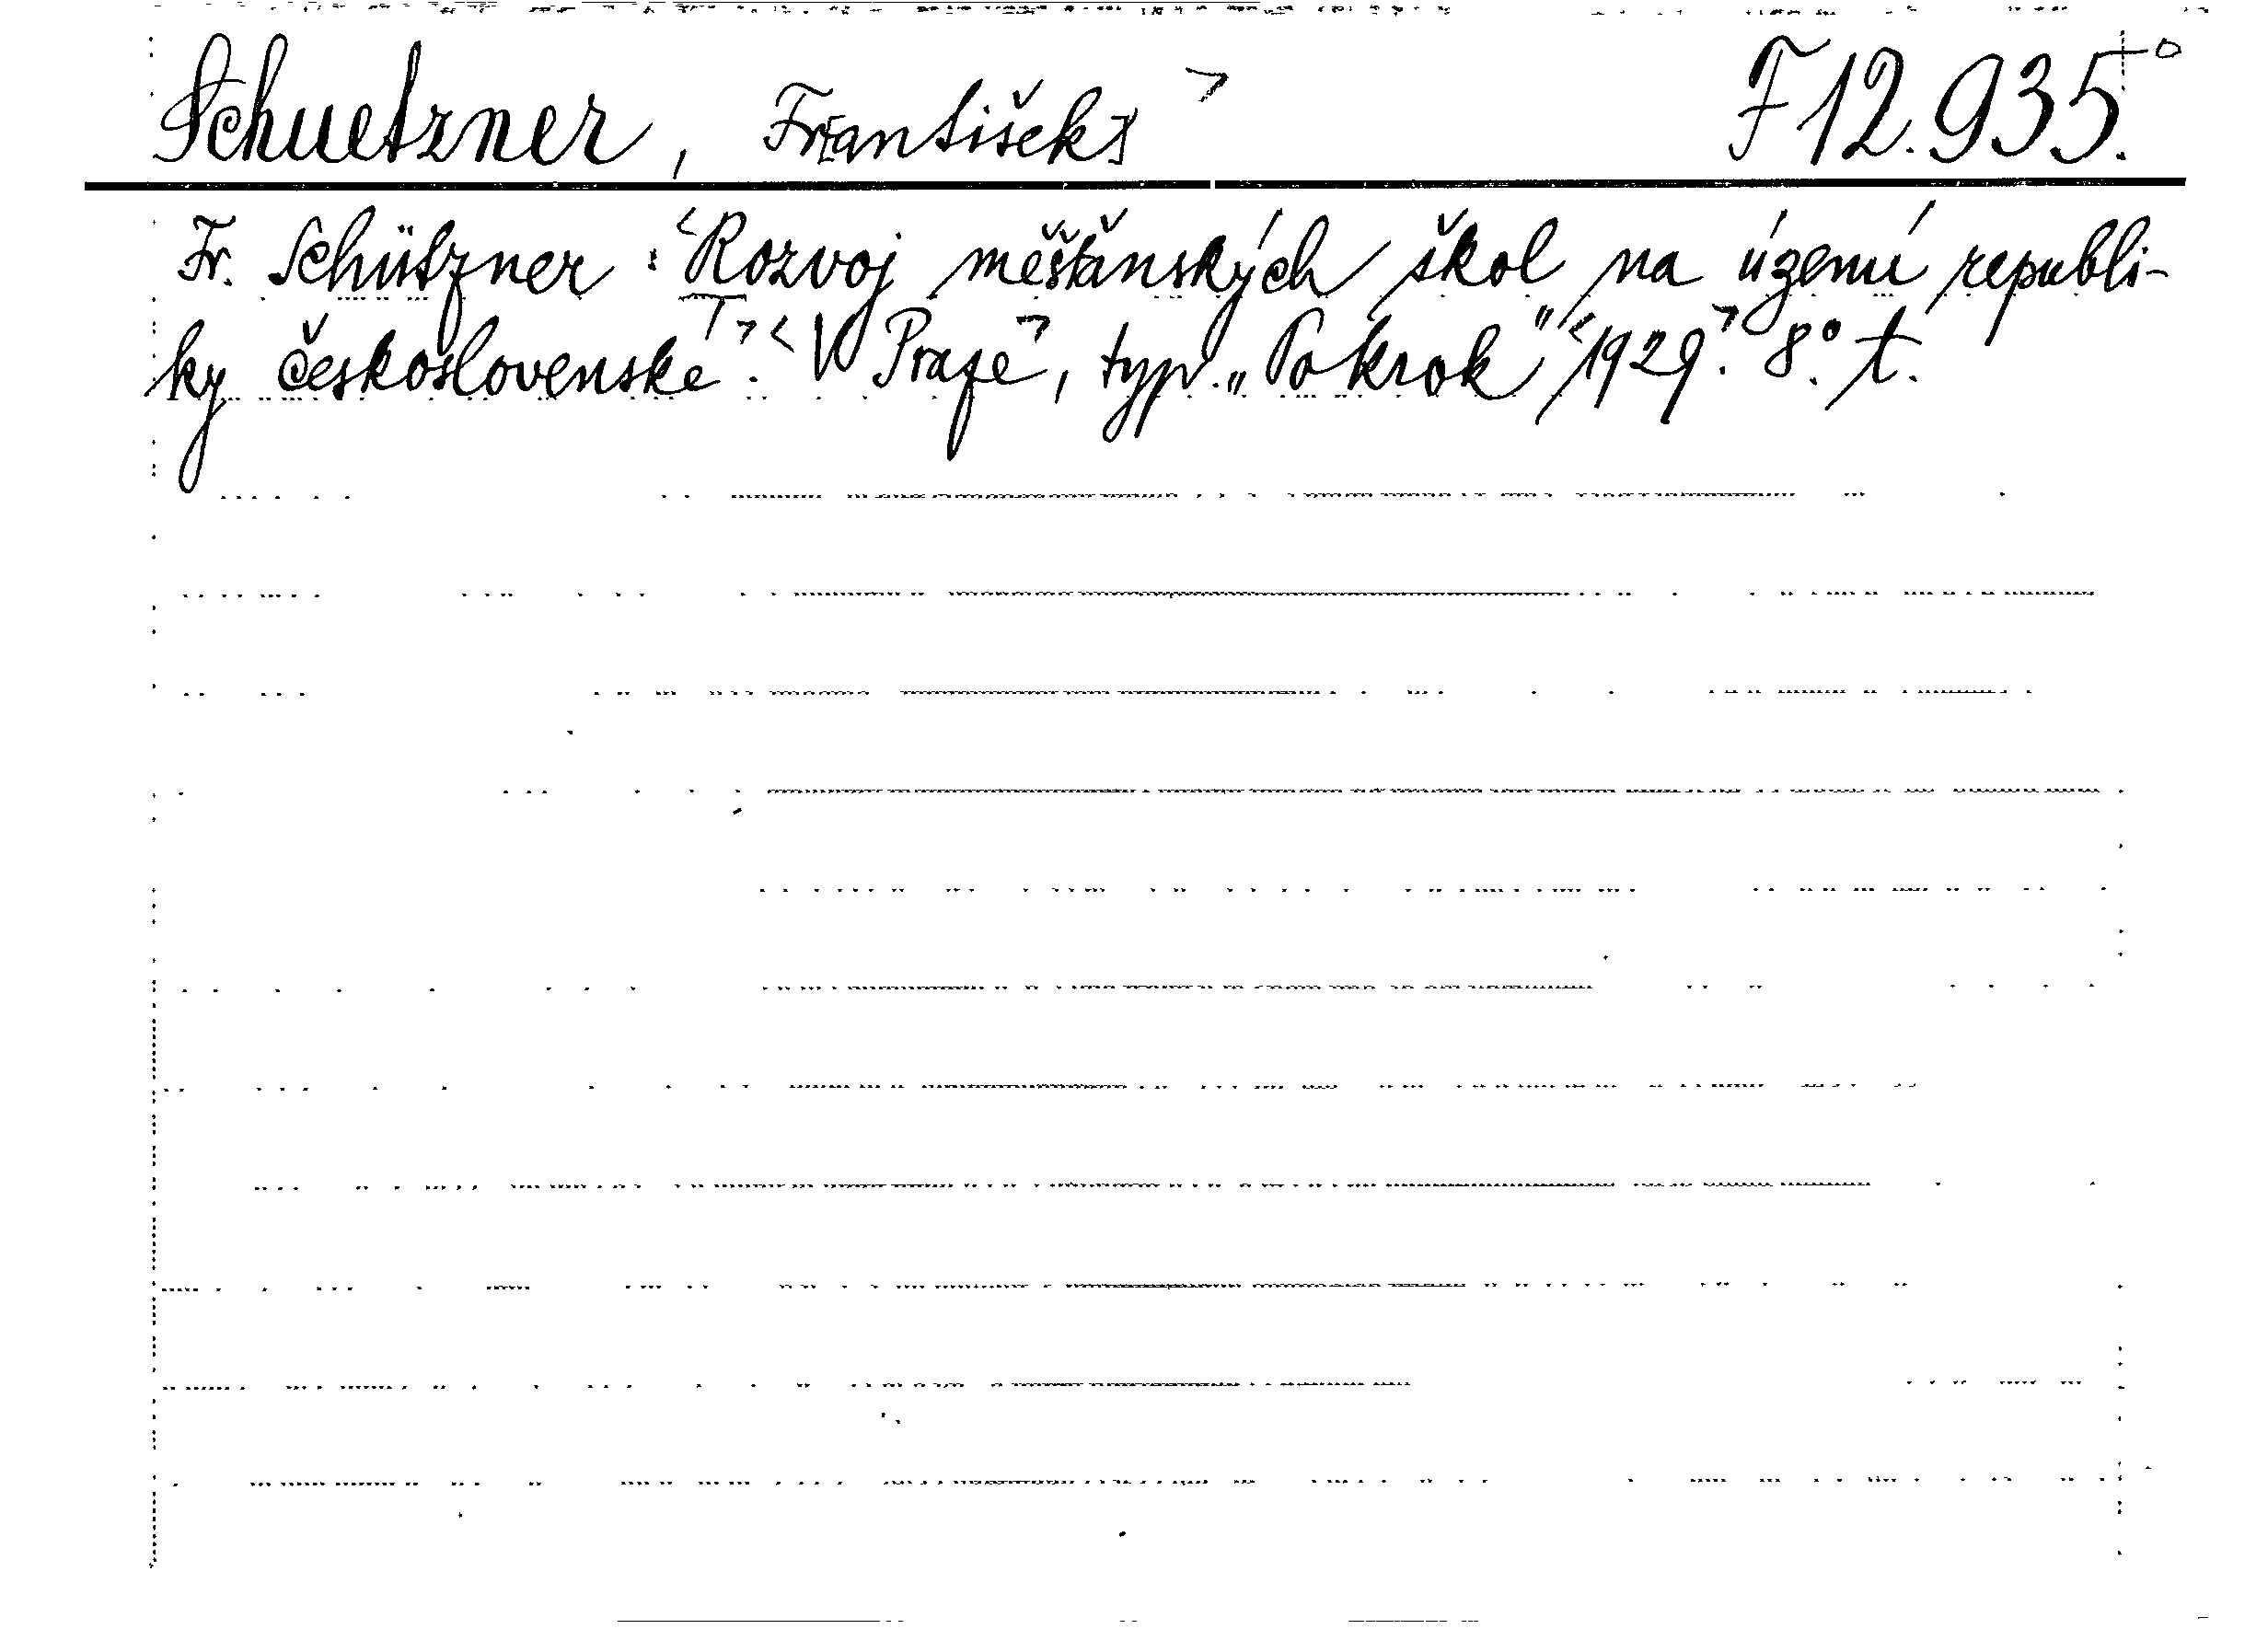 Schuetzner, Fr[antišek] F 12.935.
Fr. Schützner: Rozvoj měšťanských škol na území republi-
ky československé. V Praze, typ. „Pokrok" 1929. 8°. t.